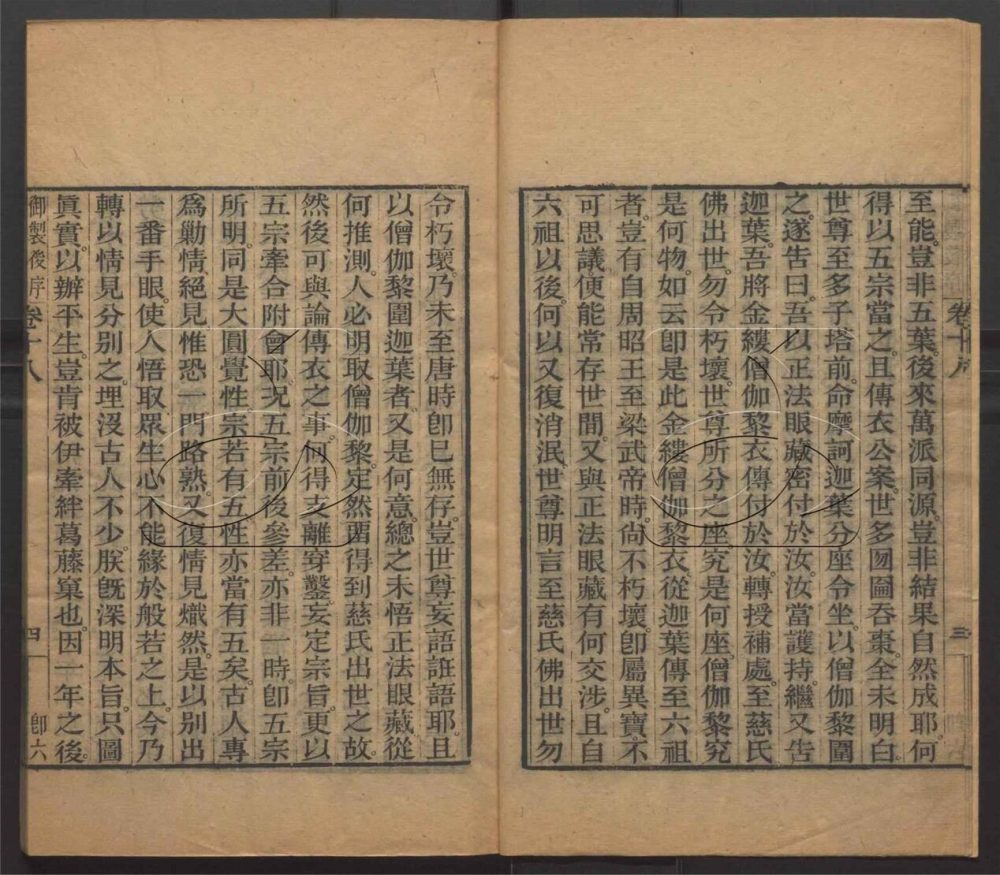 至能。豈非五葉。後來萬派同源。豈非結果自然成耶。何
得以五宗當之。且傳衣公案。世多囫圇吞棗。全未明白。
世尊至多子塔前。命摩訶迦葉分座令坐。以僧伽黎圍
之。遂告曰。吾以正法眼藏密付於汝。汝當護持。繼又告
迦葉。吾將金縷僧伽黎衣傳付於汝。轉授補處。至慈氏
佛出世。勿令朽壞。世尊所分之座。究是何座。僧伽黎究
是何物。如云卽是此金縷僧伽黎衣。從迦葉傳至六祖
者。豈有自周昭王至梁武帝時。尙不朽壞。卽屬異寶。不
可思議。便能常存世間。又與正法眼藏有何交涉。且自
六祖以後。何以又復消泯。世尊明言至慈氏佛出世。勿
令朽壞。乃未至唐時。卽已無存。豈世尊妄語誑語耶。且
以僧伽黎圍迦葉者。又是何意。總之未悟正法眼藏。從
何推測。人必明取僧伽黎。定然畱得到慈氏出世之故。
然後可與論傳衣之事。何得支離穿鑿。妄定宗旨。更以
五宗牽合附會耶。况五宗前後參差。亦非一時。卽五宗
所明。同是大圓覺性。宗若有五。性亦當有五矣。古人專
爲勦情絕見。惟恐一門路熟。又復情見熾然。是以別出
一番手眼。使人悟取眾生心。不能緣於般若之上。今乃
轉以情見分別之。埋沒古人不少。朕旣深明本旨。只圖
眞實。以辦平生。豈肯被伊牽絆葛藤窠也。因一年之後。
御製後序 卷十八 四 卽六